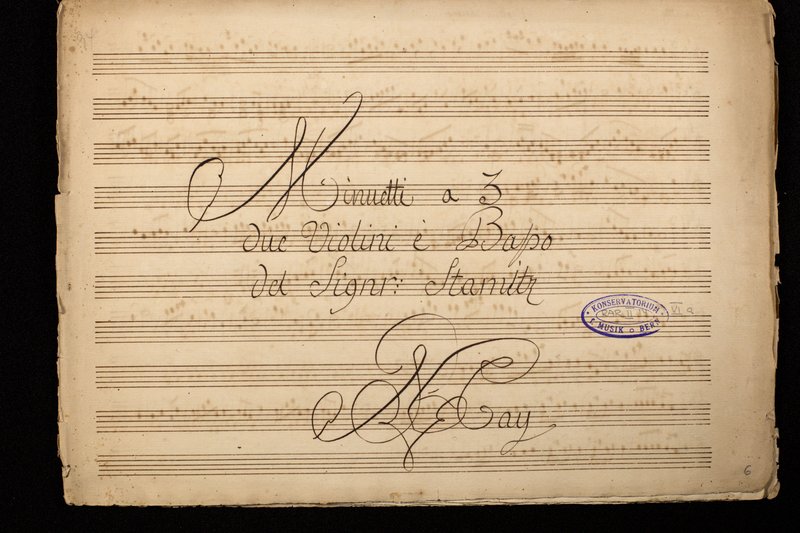 Minuetti a 3
due Violini è Baſso
del Signr: Stamitz
KONSERVATORIUM
RAR II
VI a
F. MUSIK BERN
Cay
6